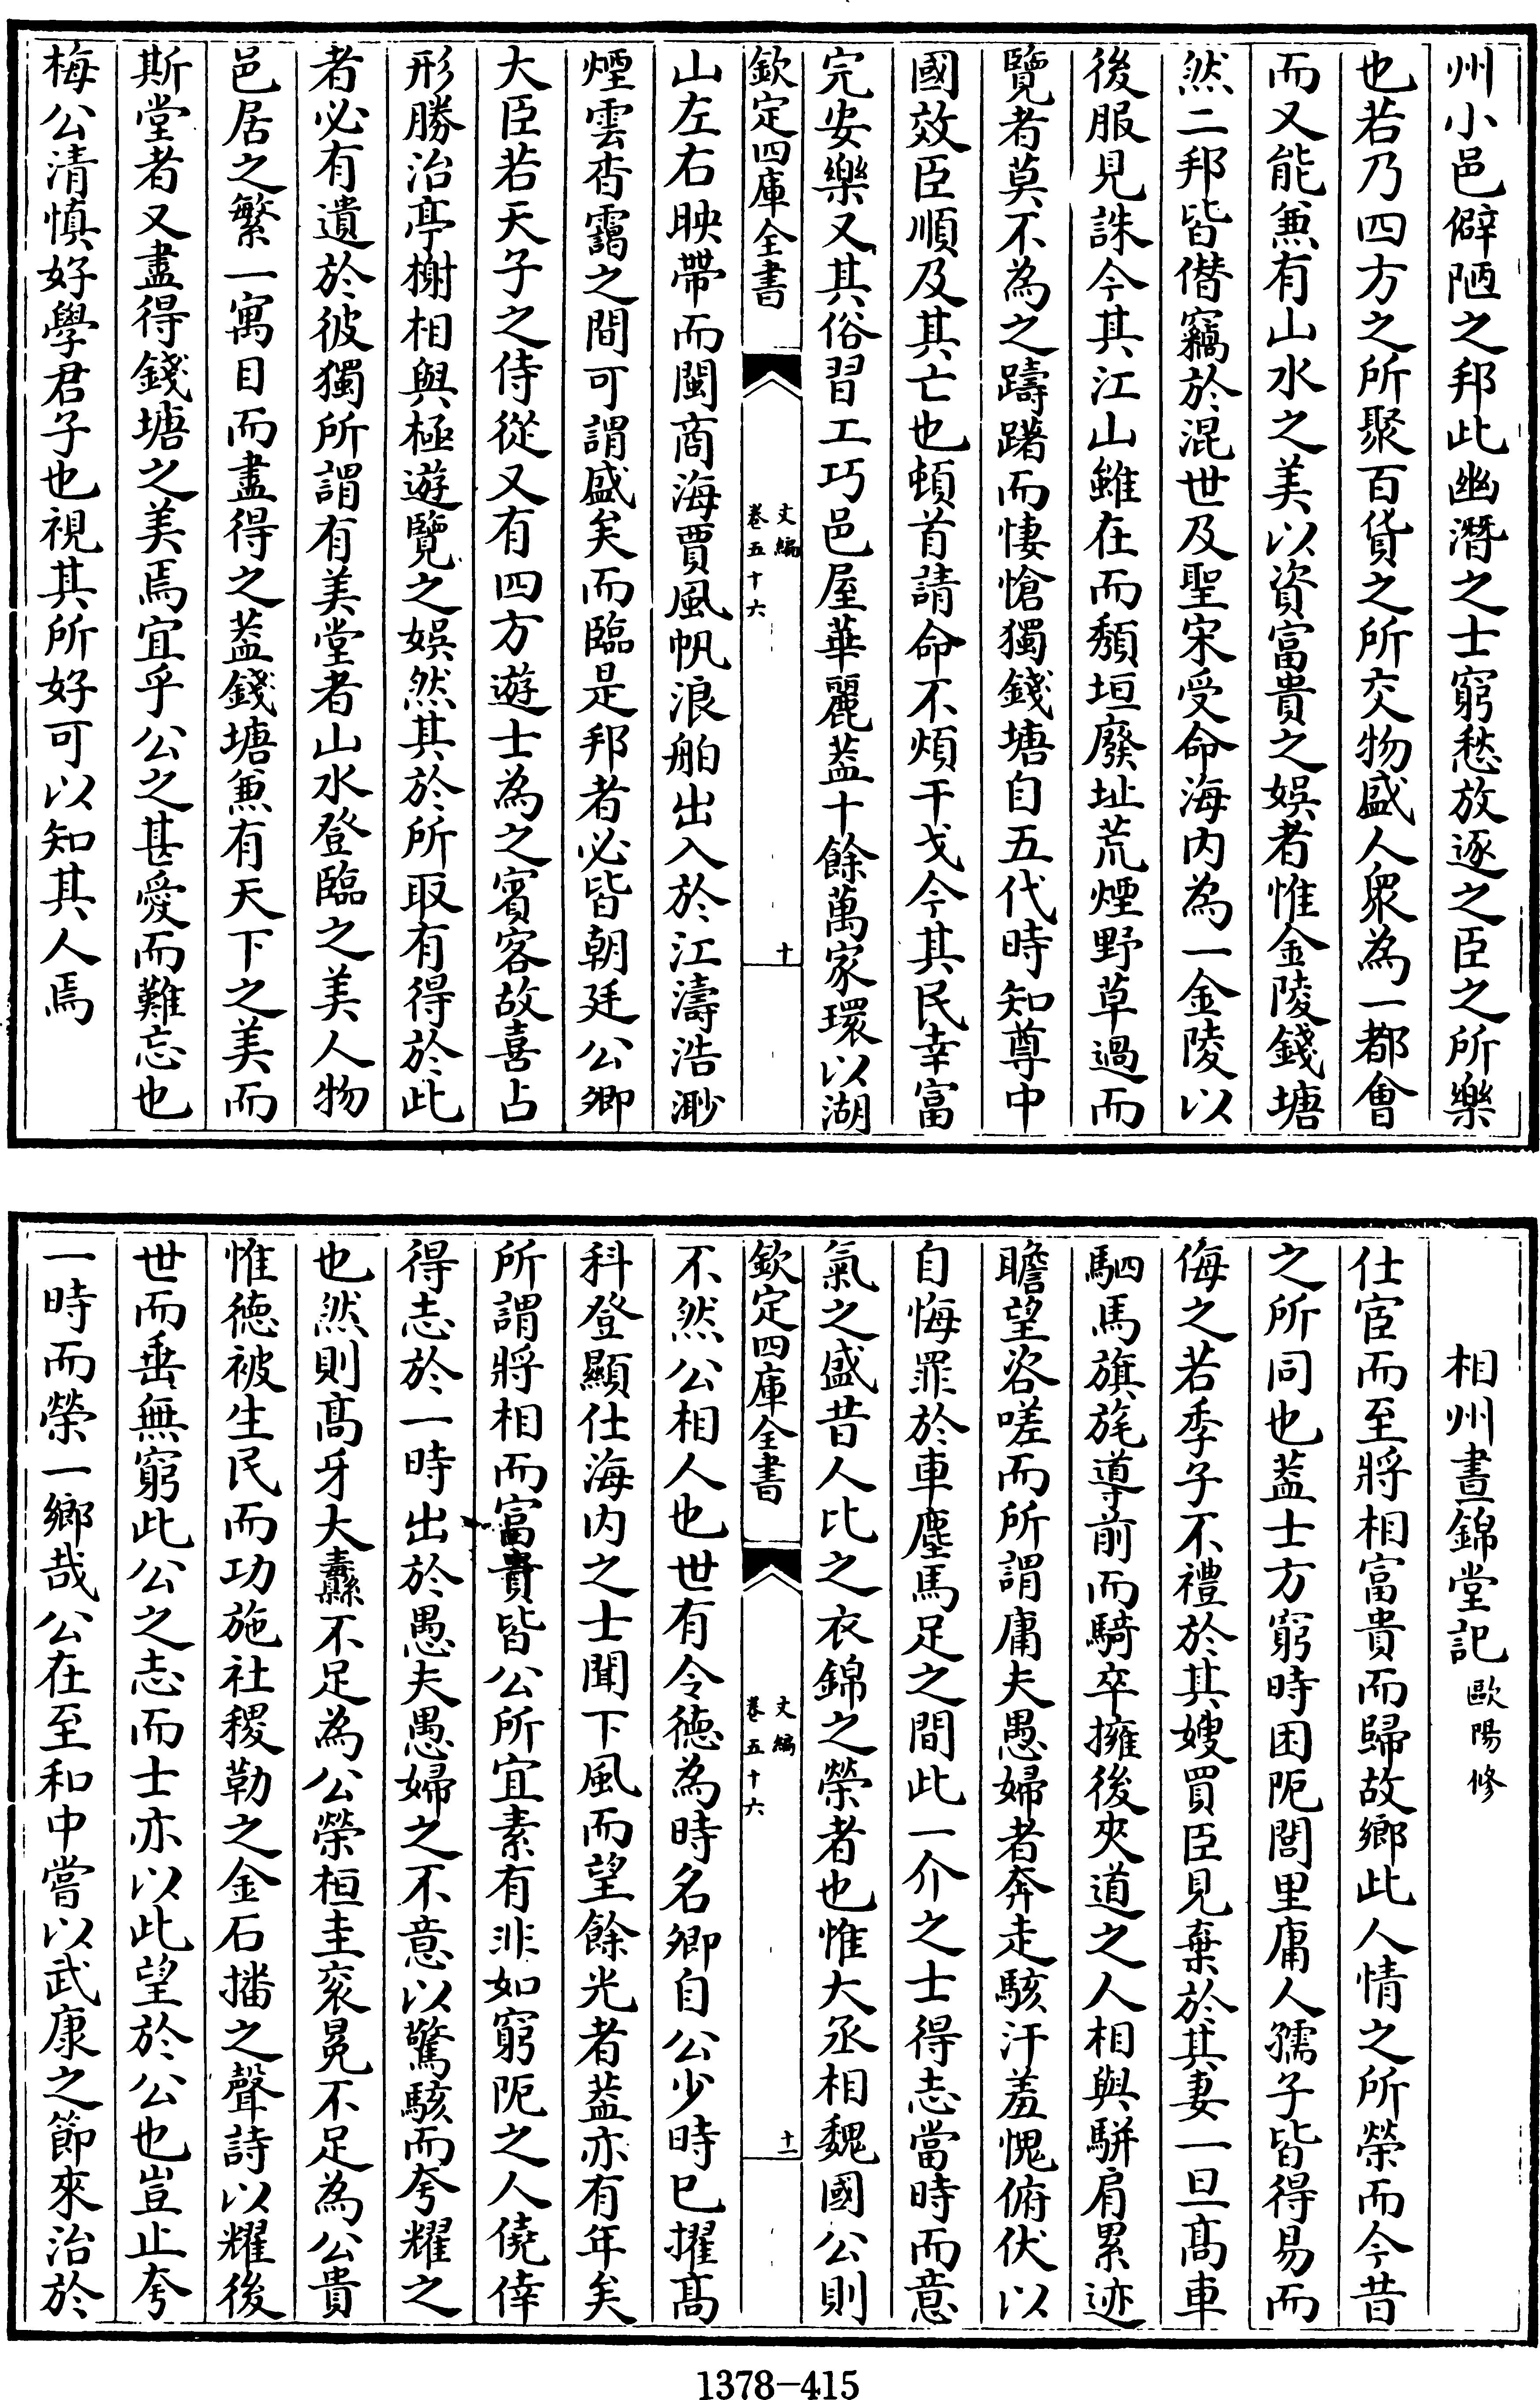 州小邑僻陋之邦此幽潛之士窮愁放逐之臣之所樂
也若乃四方之所聚百貨之所交物盛人衆為一都會
而又能兼有山水之美以資富貴之娛者惟金陵錢塘
然二邦皆僭竊於混世及聖宋受命海内為一金陵以
後服見誅今其江山雖在而頹垣廢址荒煙野草過而
覽者莫不為之躊躇而悽愴獨錢塘自五代時知尊中
國效臣順及其亡也頓首請命不煩干戈今其民幸富
完安樂又其俗習工巧邑屋華麗蓋十餘萬家環以湖
欽定四庫全書
文編
卷五十六
十
山左右映帶而閩商海賈風帆浪舶出入於江濤浩渺
煙雲杳靄之間可謂盛矣而臨是邦者必皆朝廷公卿
大臣若天子之侍從又有四方遊士為之賓客故喜占
形勝治亭榭相與極遊覽之娛然其於所取有得於此
者必有遺於彼獨所謂有美堂者山水登臨之美人物
邑居之繁一寓目而盡得之蓋錢塘兼有天下之美而
斯堂者又盡得錢塘之美焉宜乎公之甚愛而難忘也
梅公清慎好學君子也視其所好可以知其人焉
相州晝錦堂記歐陽修
仕宦而至將相富貴而歸故鄉此人情之所榮而今昔
之所同也蓋士方窮時困阨閭里庸人孺子皆得易而
侮之若季子不禮於其嫂買臣見棄於其妻一旦髙車
駟馬旗旄導前而騎卒擁後夾道之人相與駢肩累迹
瞻望咨嗟而所謂庸夫愚婦者奔走駭汗羞愧俯伏以
自悔罪於車塵馬足之間此一介之士得志當時而意
氣之盛昔人比之衣錦之榮者也惟大丞相魏國公則
欽定四庫全書
文編
卷五十六
十一
不然公相人也世有令德為時名卿自公少時已擢髙
科登顯仕海内之士聞下風而望餘光者蓋亦有年矣
所謂將相而富貴皆公所宜素有非如窮阨之人僥倖
得志於一時出於愚夫愚婦之不意以驚駭而夸耀之
也然則髙牙大纛不足為公榮桓圭衮冕不足為公貴
惟德被生民而功施社稷勒之金石播之聲詩以耀後
世而垂無窮此公之志而士亦以此望於公也豈止夸
一時而榮一鄉哉公在至和中嘗以武康之節來治於
1378-415